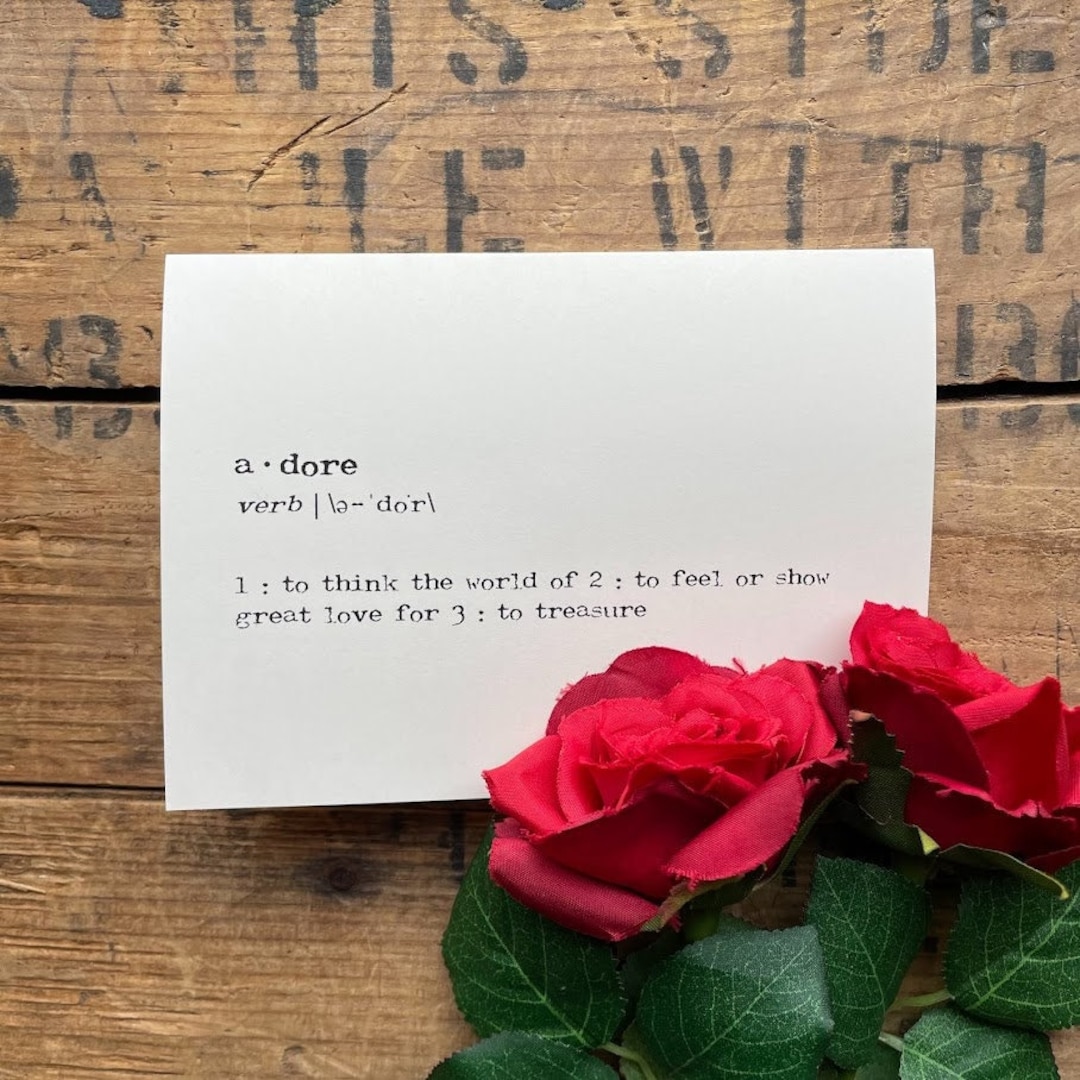 THIS SIDE
WITH
a·dore
verb | \ə-ˈdȯr\
1 : to think the world of 2 : to feel or show
great love for 3 : to treasure